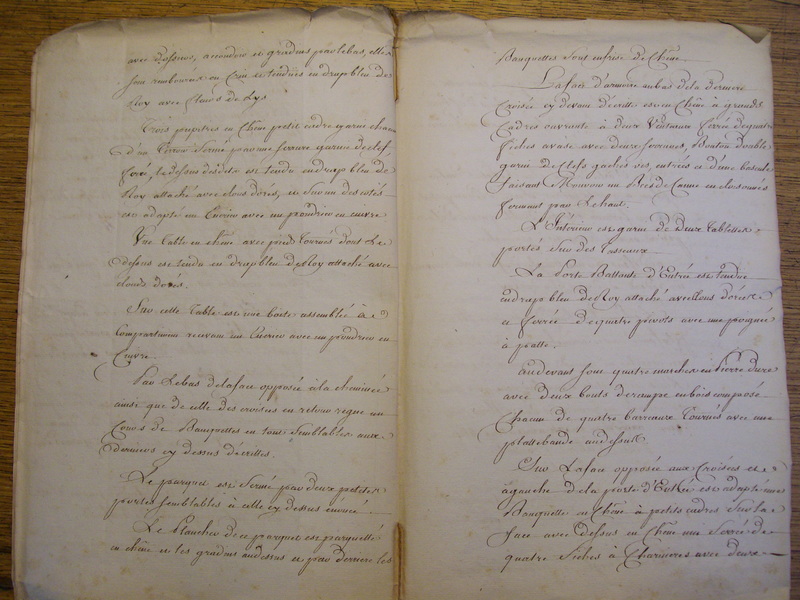 avec dossier, accoudoir et gradins par le bas, elles
sont rembourés en Crin et tendues en drap bleu de
Roy avec Clous de Lys
Trois pupitres en Chêne petit cadre garni chacun
d'un Tiroir fermé par une serrure garnie de clef
forée, le dessus desdits est tendu en drap bleu de
Roy attaché avec clous dorés, et sur un des cotés
est adapté un Encrier avec un poudrier en cuivre
Une Table en chêne avec pieds Tournés dont Le
dessus est tendu en drap bleu de Roy attaché avec
clouds dorés.
Sur cette Table est une boite assemblée à
Compartiment recevant un Encrier avec un poudrier en
Cuivre.
Par Le bas de la face opposée à la cheminée
ainsi que de celle des croisées en retour regne un
Corps de Banquettes en tout semblables aux
derniers cy dessus décrittes.
Le parquet est fermé par deux petites
portes semblables à celle cy dessus énoncée.
Le Plancher de ce parquet est parquetté
en chêne et les gradins au dessus et par derriere les
Banquettes sont en frise de Chêne.
La face d'armoire au bas de la derniere
Croisée cy devant décritte est en Chêne à grands
Cadres ouvrante à deux Venteaux ferrée de quatre
fiches a vase avec deux serrures, Bouton double
garni de clefs gaches vis, entrées et d'une bascule
faisant Mouvoir un
fermant par Le haut.
L'Intérieur est garni de deux Tablettes
portés sur des Tasseaux
La Porte Battante d'Entrée est tendue
en drap bleu de Roy attaché avec Clous dorés
et ferrée de quatre pivots avec une poignée
à patte.
au devant sont quatre marches en Pierre dure
avec deux bouts de rampe en bois composé
Chacun de quatre barreaux Tournés avec une
plattebande au dessus.
Sur La face opposée aux Croisées et
à gauche de la porte d'Entrée est adaptée une
Banquette en Chêne à petits cadres sur la
face avec dessus en Chêne uni ferrée de
quatre fiches à Charnieres avec deux